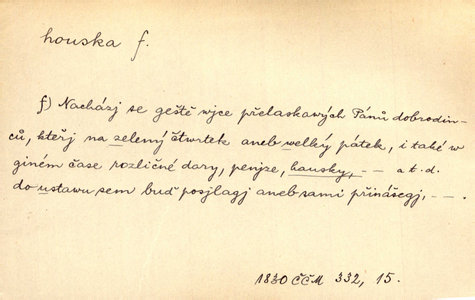 houska f.
f) Nacházj se geště wjce přelaskawých Pánů dobrodin-
ců, kteřj na zelený čtwrtek aneb welký pátek, i také w
giném čase rozličné dary, penjze, hausky, – – a t. d.
do ustawu sem buď posjlagj aneb sami přinášegj, – – .
1830 ČČM 332, 15.